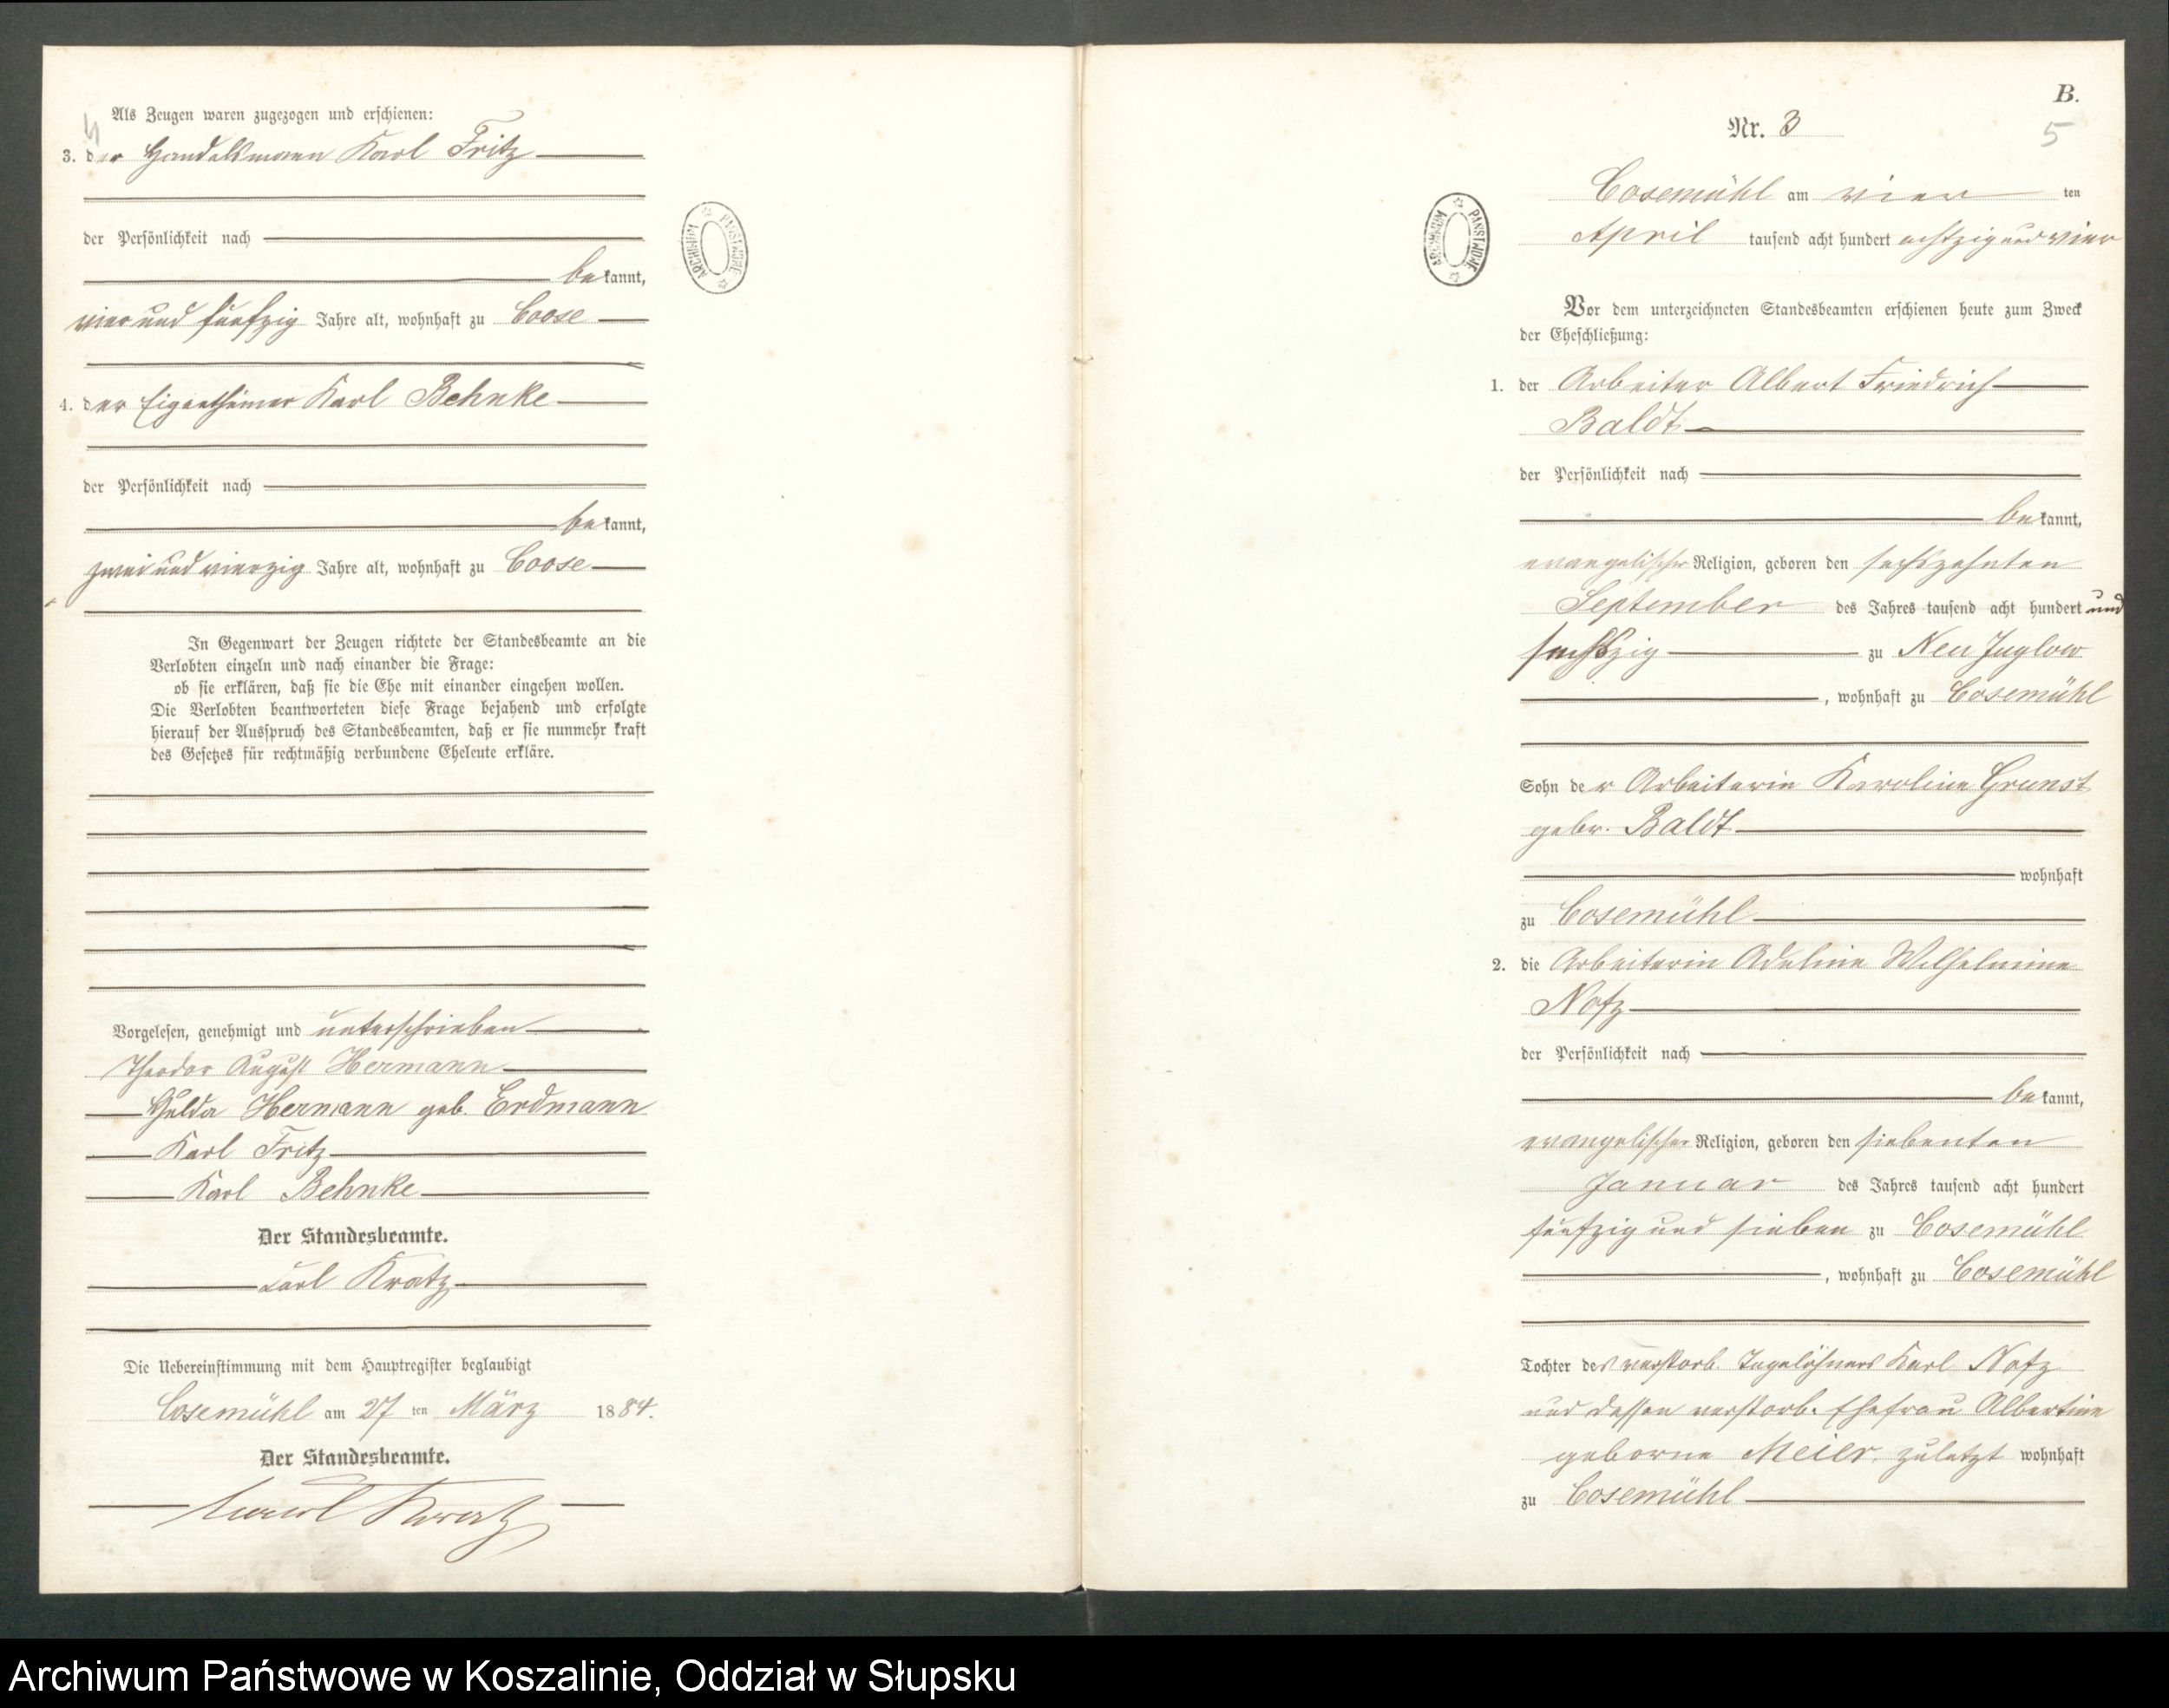 Als Zeugen waren zugezogen und erschienen:
4
3. der Handelsmann Karl Fritz
der Persönlichkeit nach
bekannt,
vier und fünfzig Jahre alt, wohnhaft zu Coose
4. der Eigenthümer Karl Behnke
der Persönlichkeit nach
bekannt,
zwei und vierzig Jahre alt, wohnhaft zu Coose
In Gegenwart der Zeugen richtete der Standesbeamte an die
Verlobten einzeln und nach einander die Frage:
ob sie erklären, daß sie die Ehe mit einander eingehen wollen.
Die Verlobten beantworteten diese Frage bejahend und erfolgte
hierauf der Ausspruch des Standesbeamten, daß er sie nunmehr kraft
des Gesetzes für rechtmäßig verbundene Eheleute erkläre.
Vorgelesen, genehmigt und unterschrieben
Theodor August Hermann
Hulda Hermann geb. Erdmann
Karl Fritz
Karl Behnke
Der Standesbeamte.
Karl Kratz
Die Uebereinstimmung mit dem Hauptregister beglaubigt
Cosemühl am 27 ten März 1884.
Der Standesbeamte.
Kratz
ARCHIWUM PAŃSTWOWE
B.
Nr. 3
5
Cosemühl am vier ten
April tausend acht hundert achtzig und vier
ARCHIWUM PAŃSTWOWE
Vor dem unterzeichneten Standesbeamten erschienen heute zum Zweck
der Eheschließung:
1. der Arbeiter Albert Friedrich
Baldt
der Persönlichkeit nach
bekannt,
evangelischer Religion, geboren den sechszehnten
September des Jahres tausend acht hundert und
sechszig zu Neu Juglow
, wohnhaft zu Cosemühl
Sohn der Arbeiterin Karoline Grunst
gebr. Baldt
wohnhaft
zu Cosemühl
2. die Arbeiterin Adeline Wilhelmine
Notz
der Persönlichkeit nach
bekannt,
evangelischer Religion, geboren den siebenten
Januar des Jahres tausend acht hundert
fünfzig und sieben zu Cosemühl
, wohnhaft zu Cosemühl
Tochter des verstorb. Tagelöhners Karl Notz
und dessen verstorb. Ehefrau Albertine
geborne Meier, zuletzt wohnhaft
zu Cosemühl
Archiwum Państwowe w Koszalinie, Oddział w Słupsku